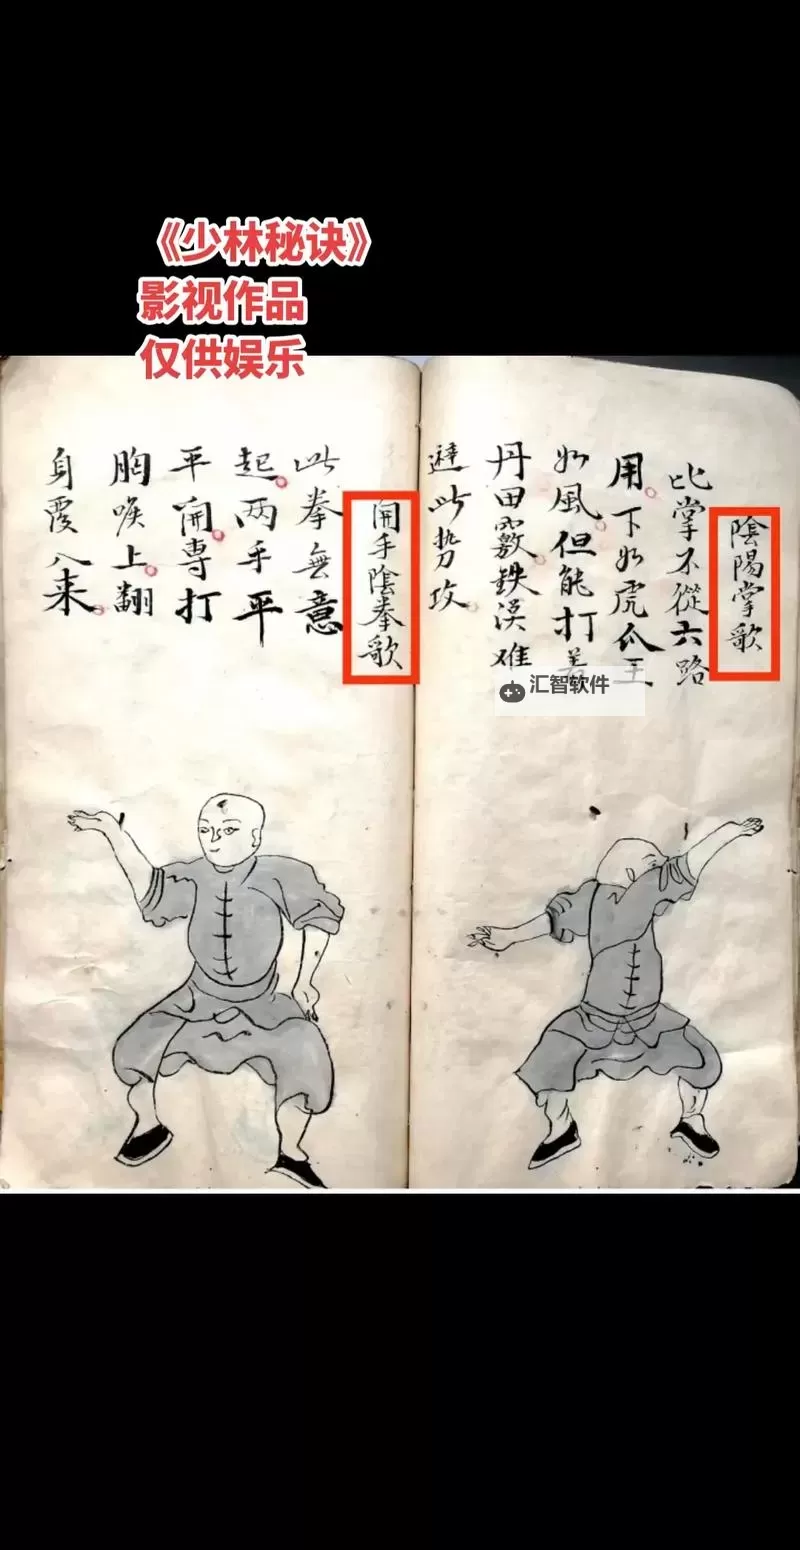 《少林秘诀》
影视作品
仅供娱乐
陰陽掌歌
比掌不從六路
用下如虎爪王
如風但能打着
丹田竅鉄漢难
避此势攻
開手陰拳歌
此拳無意
起两手平
平開專打
胸喉上翻
身覆入来
汇智软件